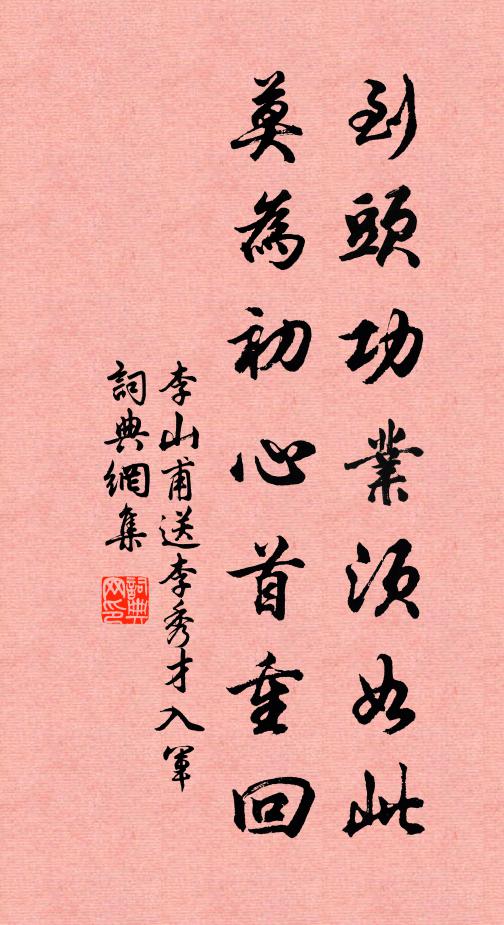 到頭功業須如此
莫為初心首重回
李山甫送李秀才入軍
詞典網集
詞典网印